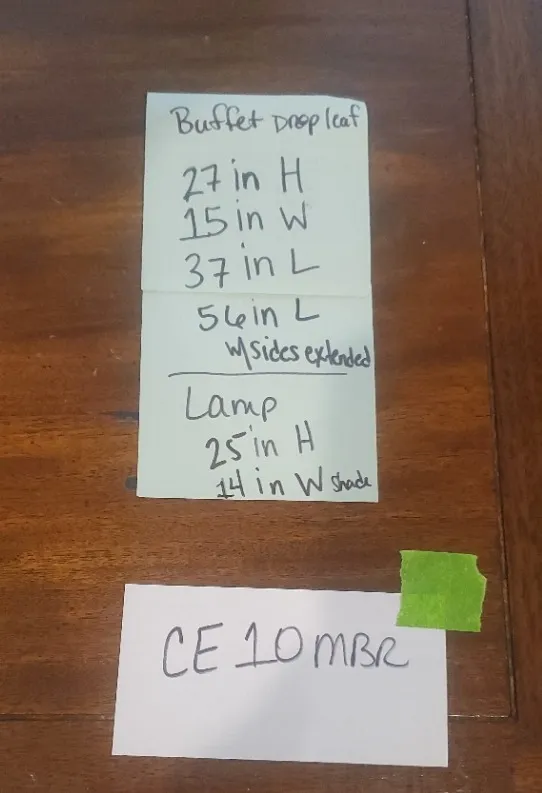 Buffet Drop leaf
27 in H
15 in W
37 in L
56 in L
w/sides extended
Lamp
25 in H
14 in W shade
CE 10 MBR